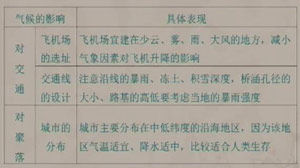 气候的影响 具体表现
对交通
飞机场的选址
飞机场宜建在少云、雾、雨、大风的地方，减小
气象因素对飞机升降的影响
交通线的设计
注意沿线的暴雨、冻土、积雪深度，桥涵孔径的
大小、路基的高低要考虑当地的暴雨强度
对聚落
城市的分布
城市主要分布在中低纬度的沿海地区，因为该地
区气温适宜、降水适中，比较适合人类生存